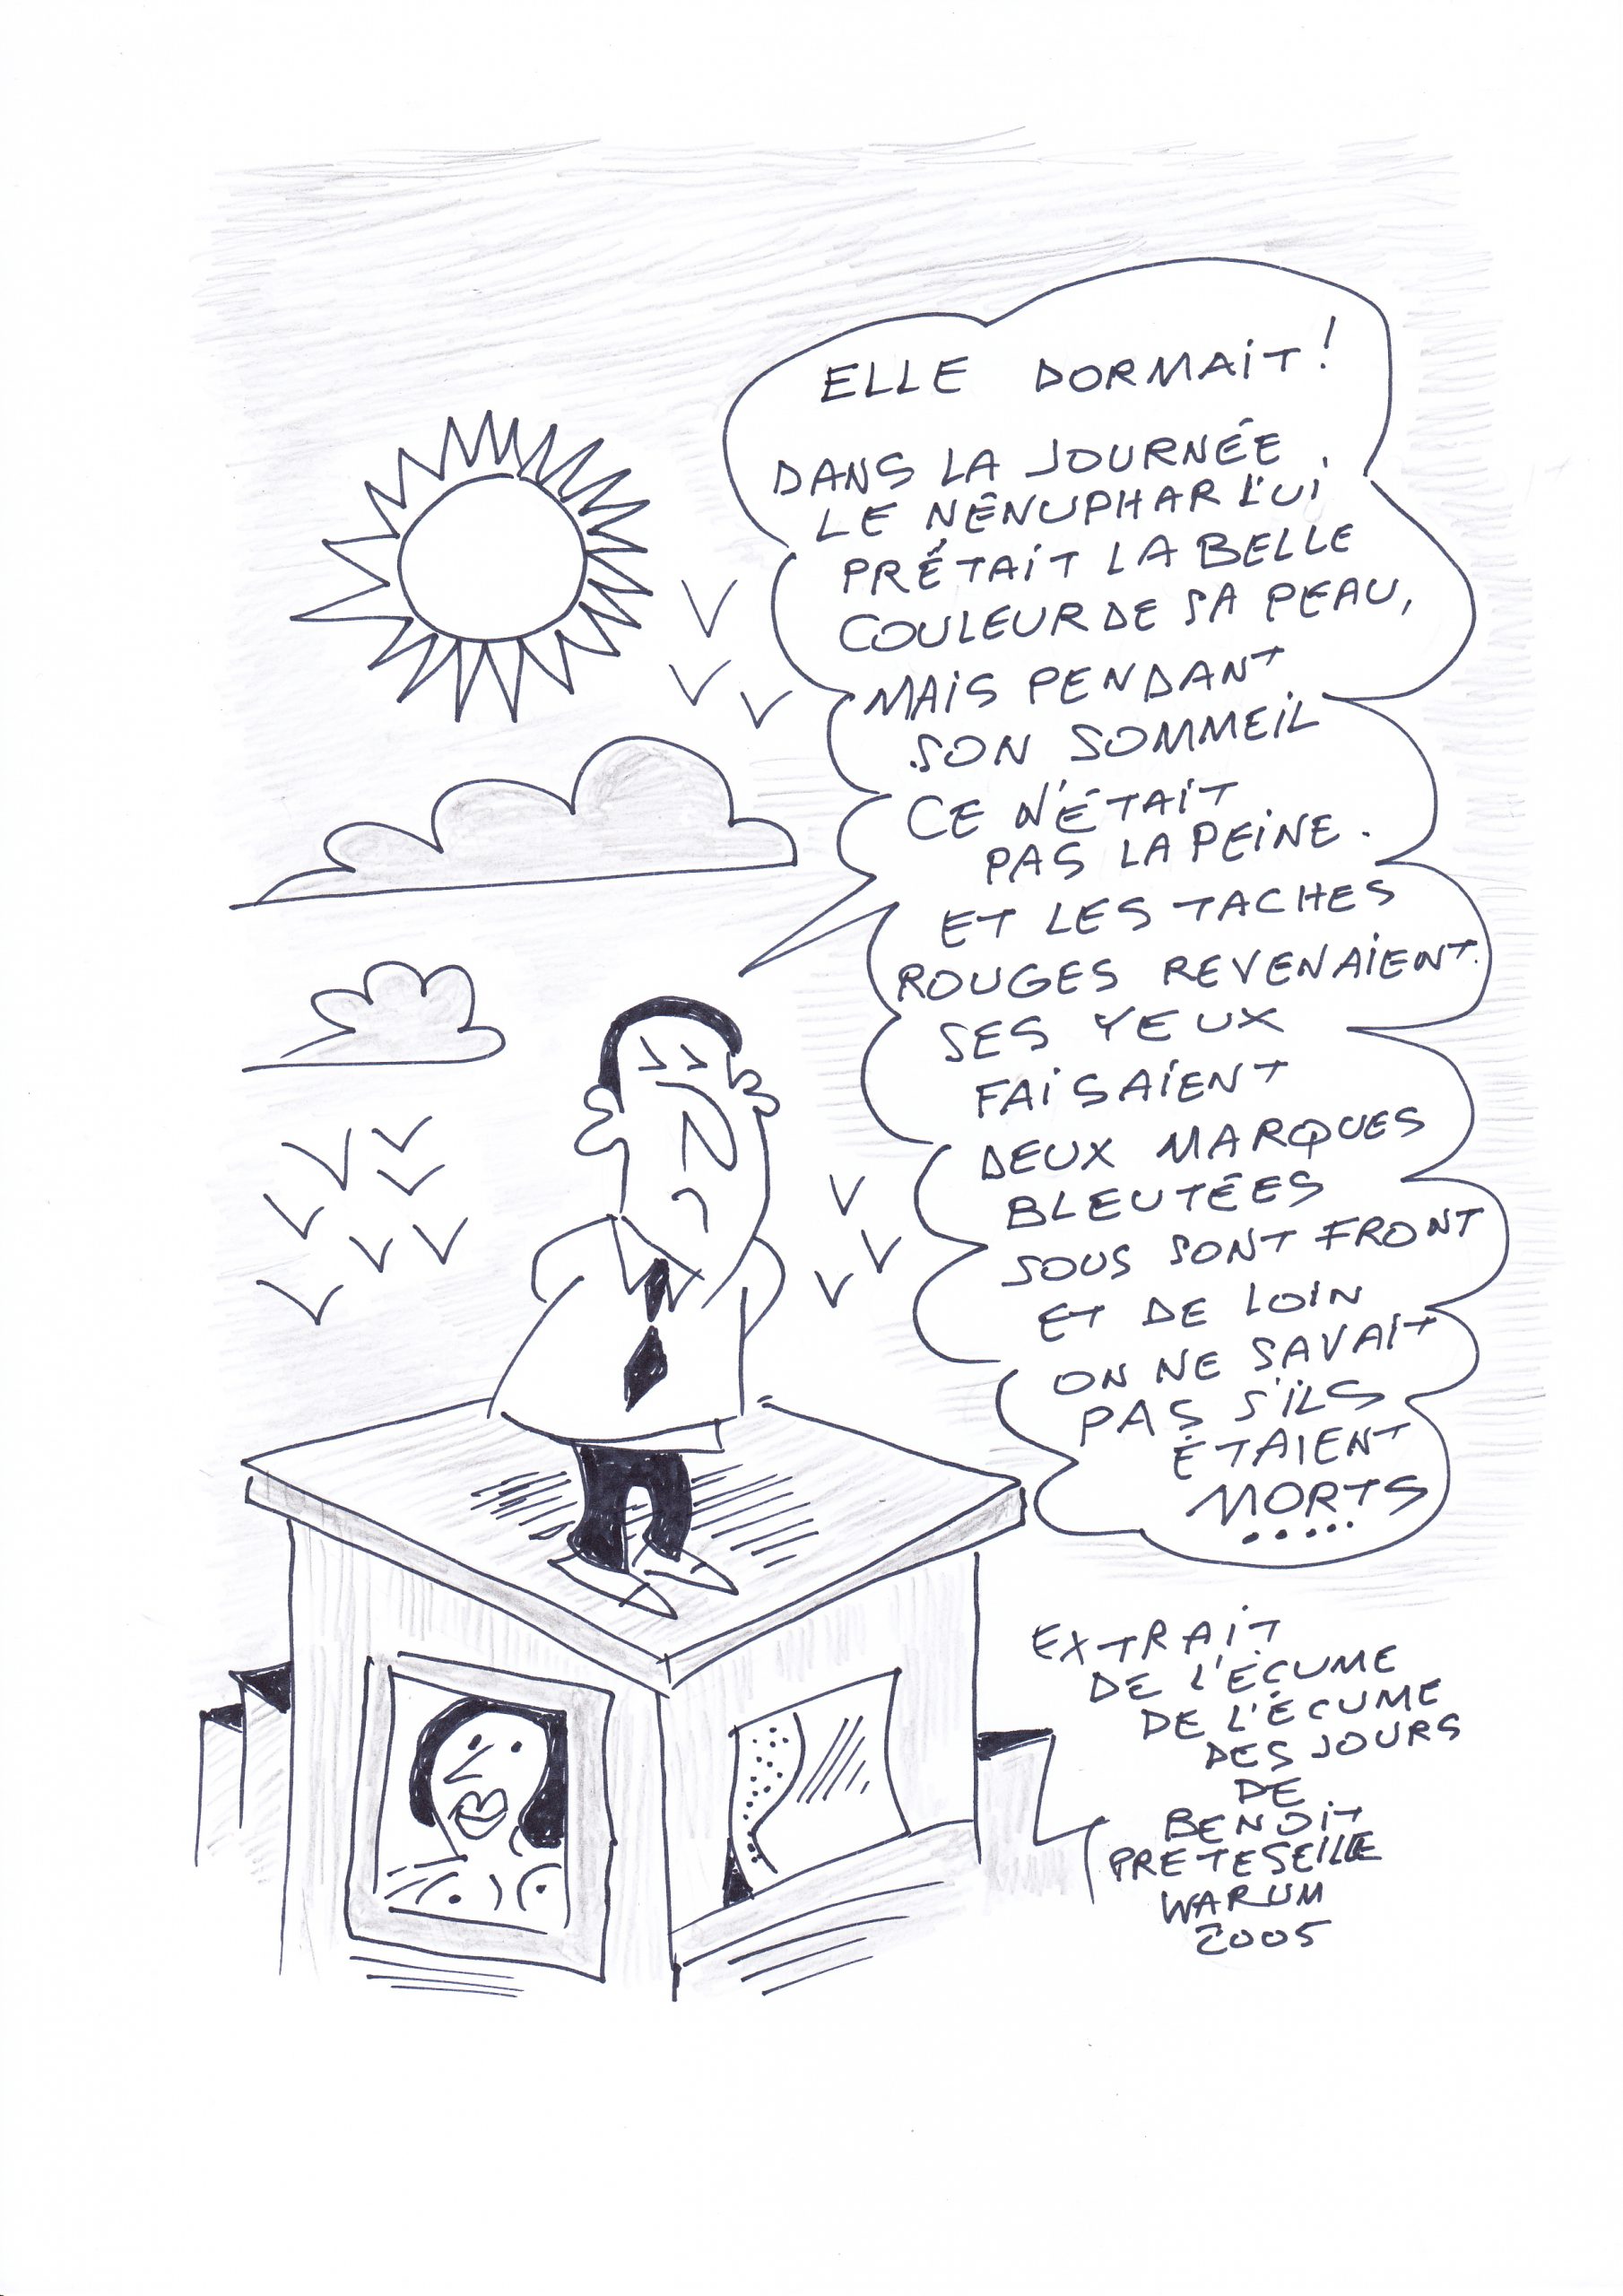 ELLE DORMAIT!
DANS LA JOURNÉE
LE NÉNUPHAR LUI
PRÊTAIT LA BELLE
COULEUR DE SA PEAU,
MAIS PENDANT
SON SOMMEIL
CE N'ÉTAIT
PAS LA PEINE.
ET LES TACHES
ROUGES REVENAIENT.
SES YEUX
FAISAIENT
DEUX MARQUES
BLEUTÉES
SOUS SONT FRONT
ET DE LOIN
ON NE SAVAIT
PAS S'ILS
ÉTAIENT
MORTS
.....
EXTRAIT
DE L'ÉCUME
DE L'ÉCUME
DES JOURS
DE
BENOIT
PRETESEILLE
WARUM
2005